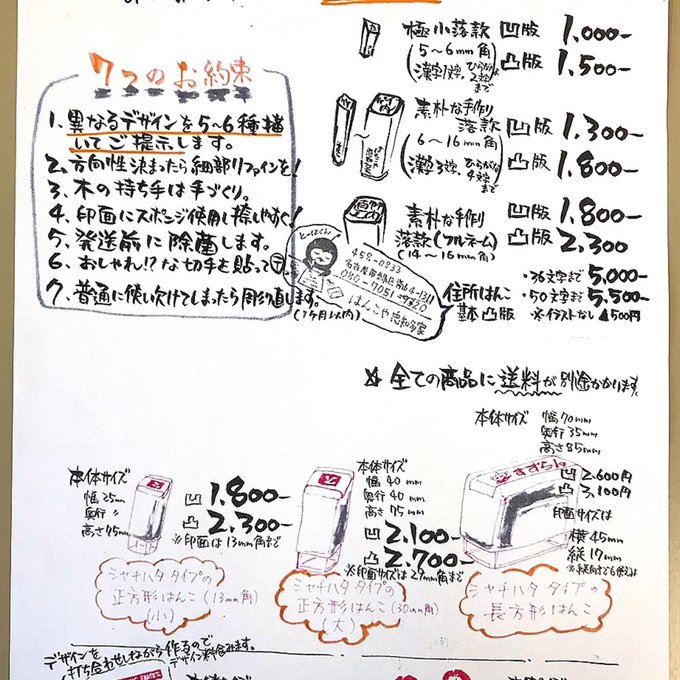 極小落款 凹版 1,000-
(5〜6mm角 凸版 1,500-
漢字1文字、ひらがな2文字まで)
7つのお約束
1、異なるデザインを5〜6種描
いてご提示します。
2、方向性決まったら細部リファインを!
3、木の持ち手は手づくり。
4、印面にスポンジ使用し捺しやすく!
5、発送前に除菌します。
6、おしゃれ!?な切手を貼って〒。
7、普通に使い欠けてしまったら彫り直します。
(1ヶ月以内)
素朴な手作り
落款 凹版 1,300-
6〜16mm角 凸版 1,800-
(漢字3文字、ひらがな4文字まで)
素朴な手作り 凹版 1,800-
落款(フルネーム) 凸版 2,300
(14〜16mm角)
とーはくん
458-0833
はんこや忠和多家
住所はんこ
基本凸版
・36文字まで 5,000-
・50文字まで 5,500-
※イラストなし 4,500円
全ての商品に送料が別途かかります。
本体サイズ
幅35mm
奥行〃
高さ75mm
凹 1,800-
凸 2,300-
※印面は13mm角まで
シャチハタタイプの
正方形はんこ(13mm角)
(小)
本体サイズ
幅40mm
奥行40mm
高さ75mm
凹 2,100-
凸 2,700-
※印面サイズは29mm角まで
シャチハタタイプの
正方形はんこ(30mm角)
(大)
本体サイズ 幅70mm
奥行35mm
高さ85mm
すずらん
凹 2,600円
凸 3,100円
印面サイズは
横45mm
縦17mm
シャチハタタイプの
長方形はんこ
デザインを
打ち合わせしながら作るので
デザイン料含みます。